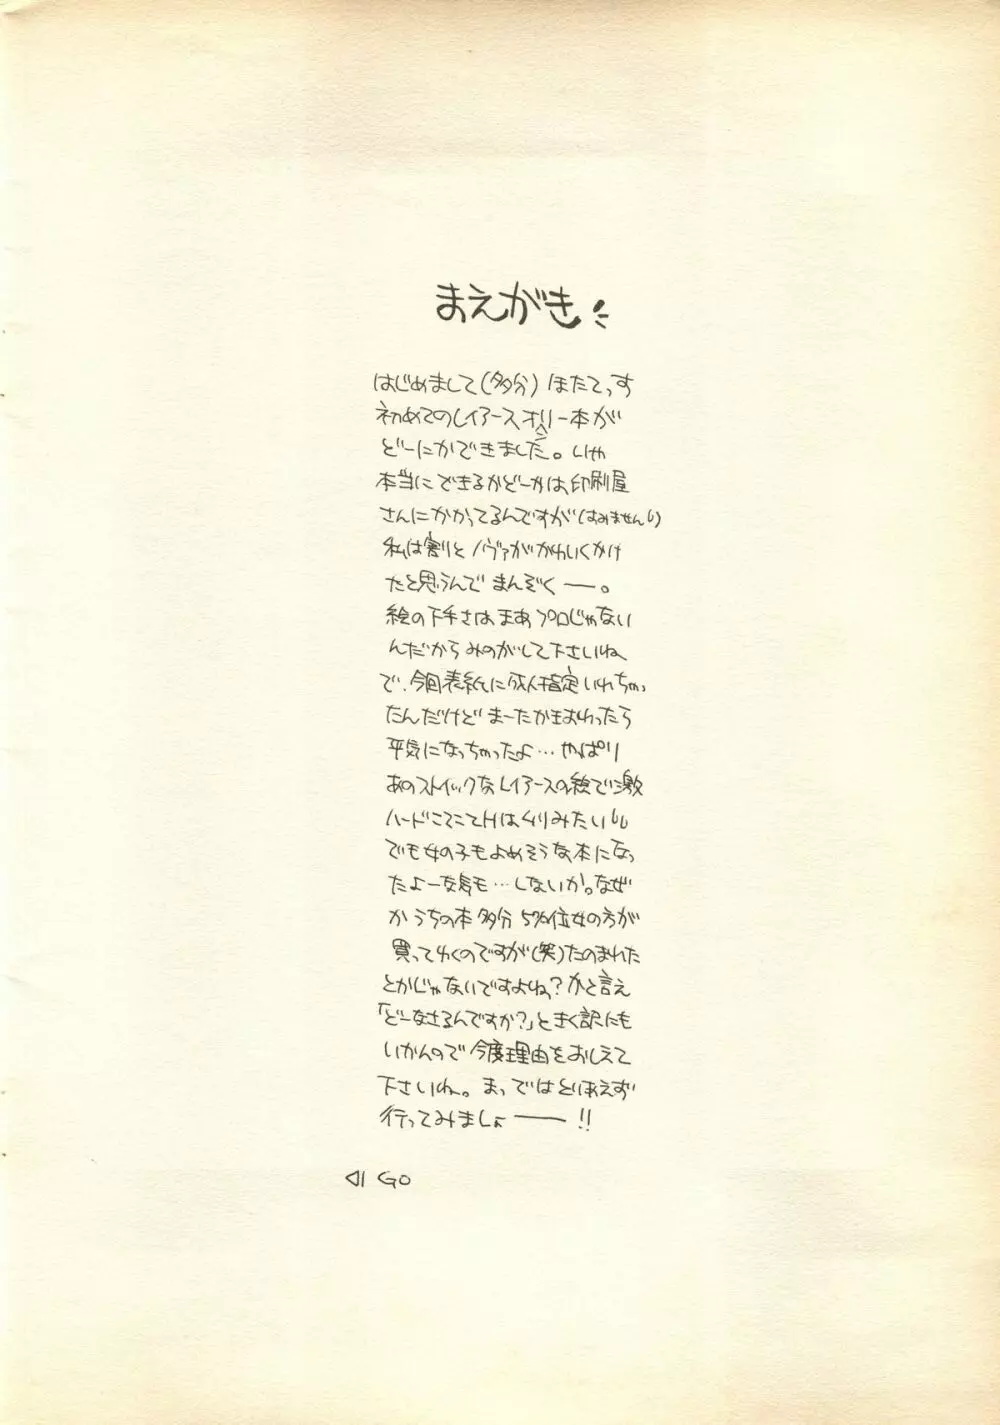 まえがき
はじめまして(多分)ほたてっす
初めてのレイアースオンリー本が
どーにかできました。いや
本当にできるかどーかは、印刷屋
さんにかかってるんですが(すみません)
私は割とノヴァがかわいくかけ
たと思うんでまんぞくー。
絵の下手さは、まあプロじゃない
んだからみのがして下さいね
で、今回表紙に成人指定いれちゃっ
たんだけどまーたかきおわったら
平気になっちゃったよ…やっぱり
あのストイックなレイアースの絵で激
ハードこてこてHはムリみたい
でも女の子もよめそうな本になっ
たよーな気も…しないか。なぜ
かうちの本多分5%位女の方が
買ってゆくのですが(笑)たのまれた
とかじゃないですよね?かと言え
「どーなさるんですか?」ときく訳にも
いかんので今度理由をおしえて
下さいね。まっではとりあえず
行ってみましょー!!
GO